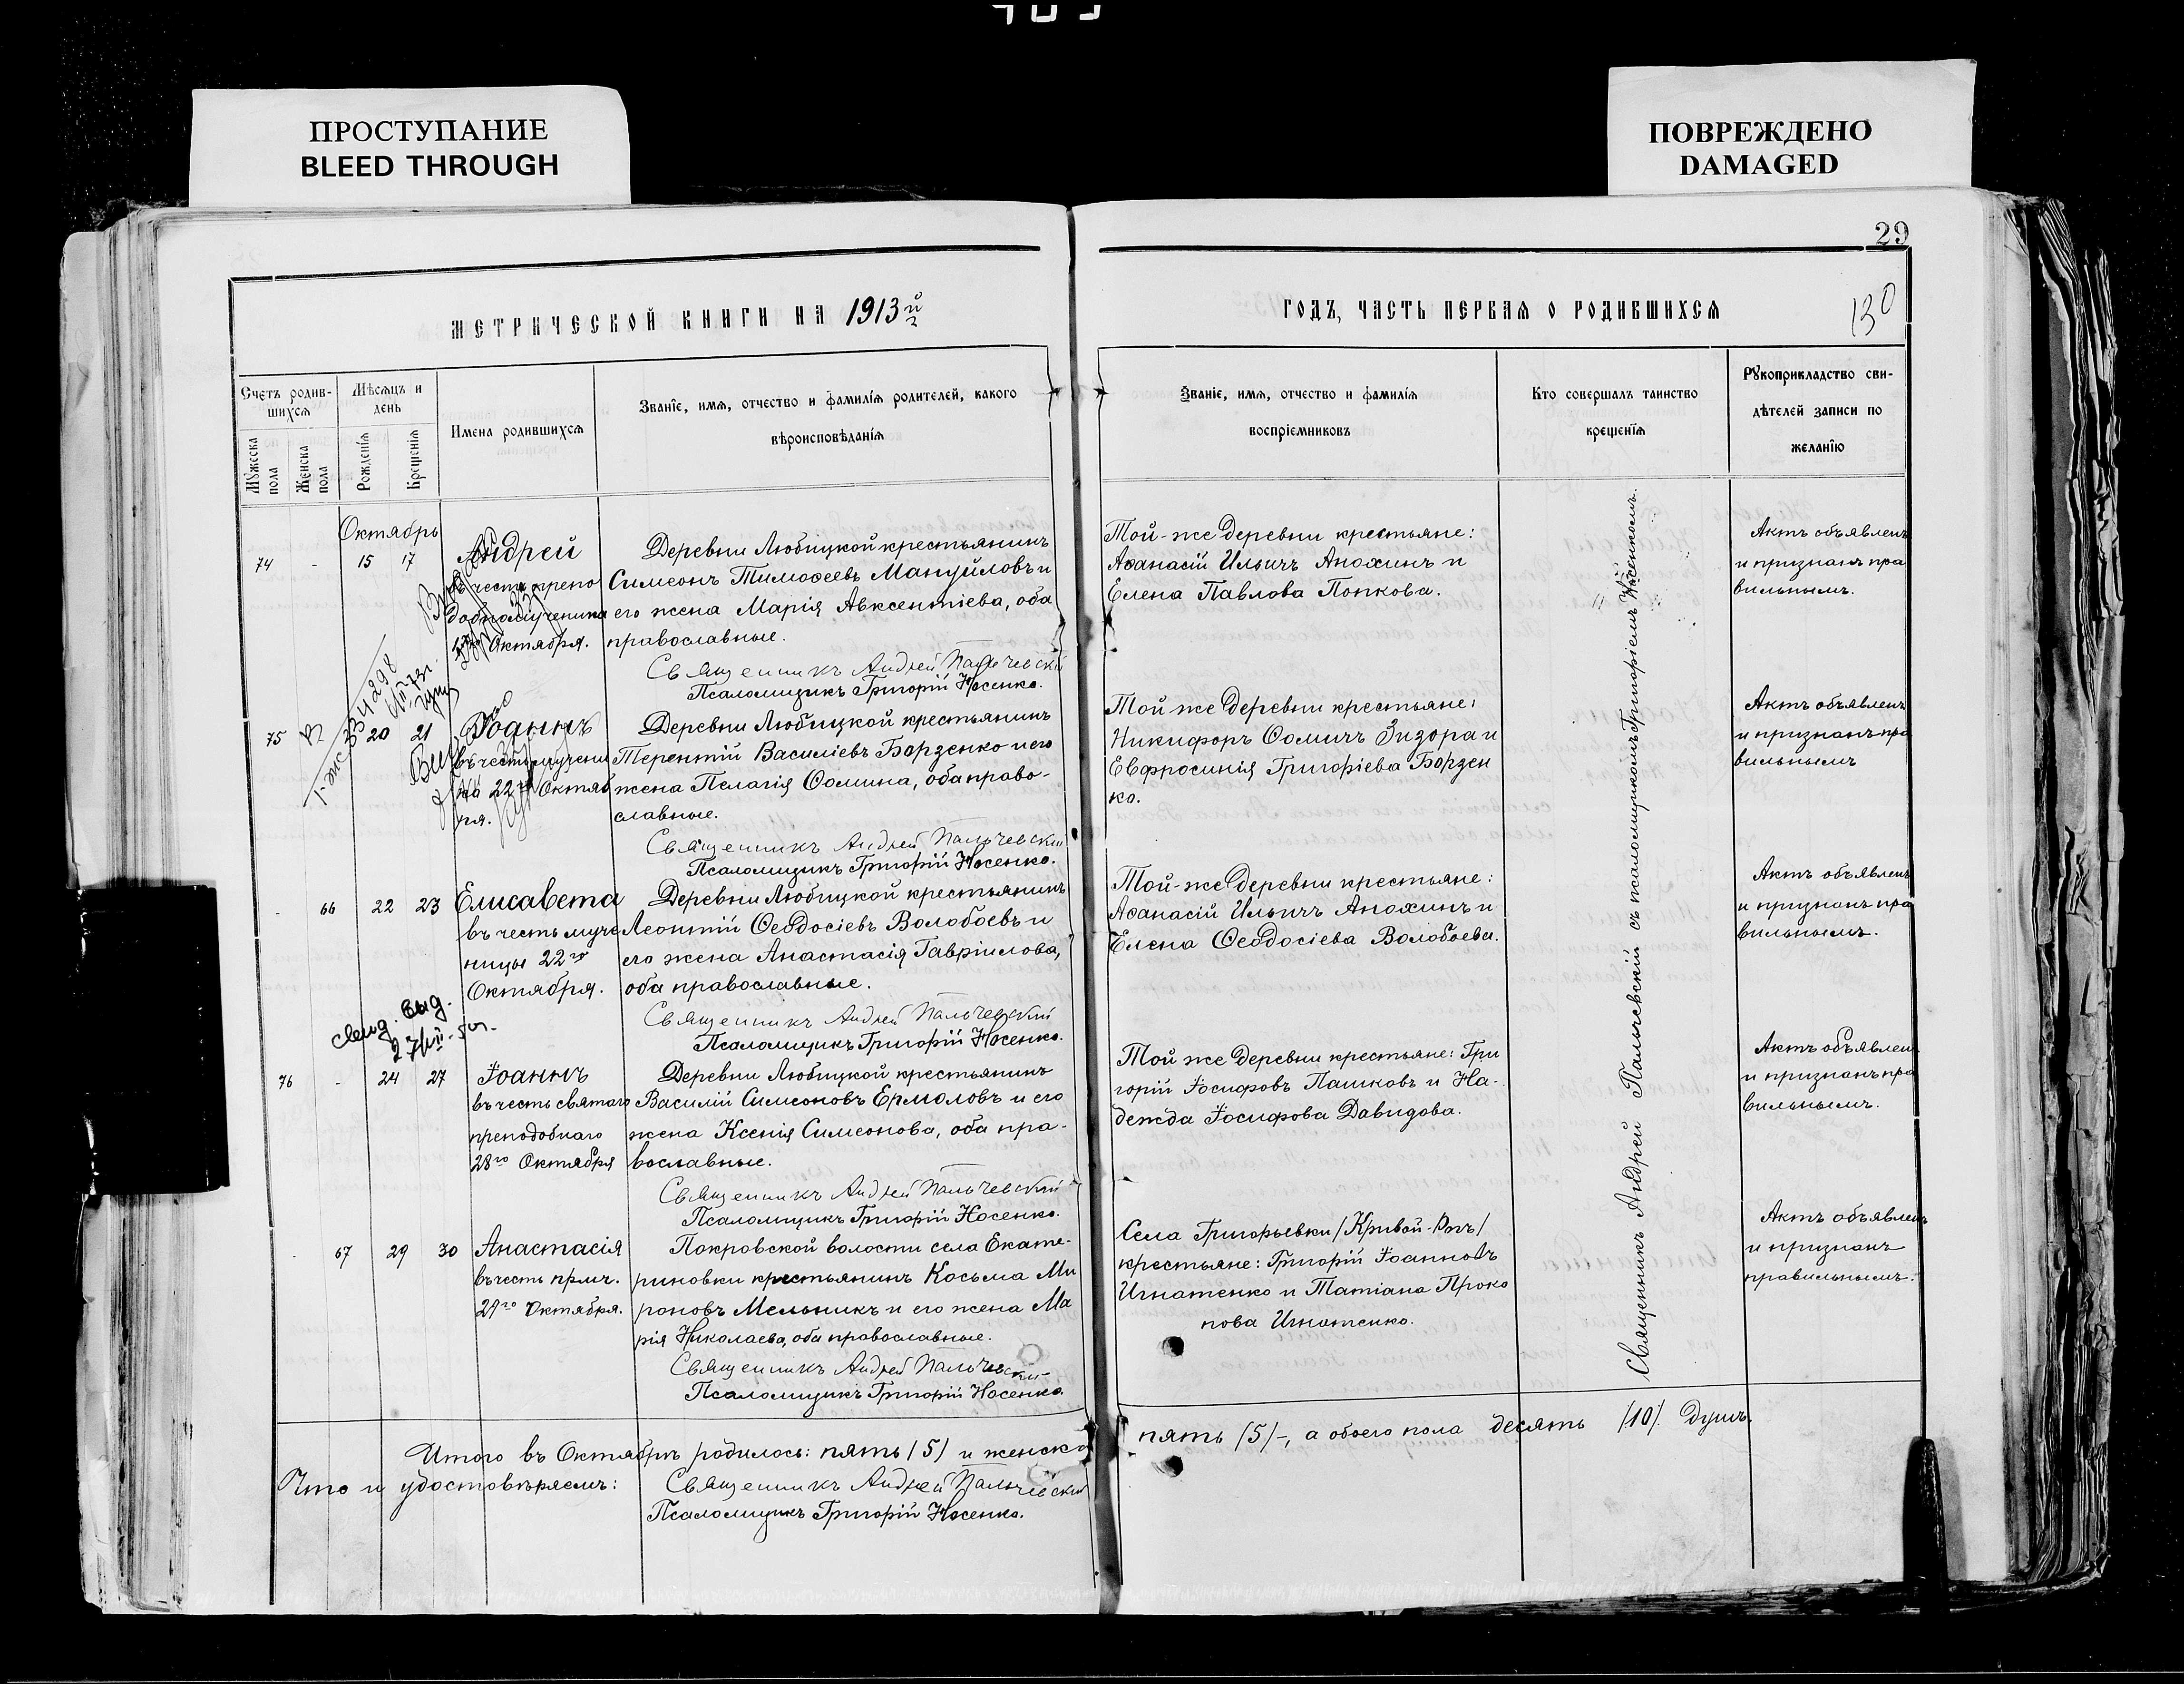 ПРОСТУПАНИЕ
BLEED THROUGH
ПОВРЕЖДЕНО
DAMAGED
29
130
МЕТРИЧЕСКОЙ КНИГИ НА 1913й
ГОДЪ, ЧАСТЬ ПЕРВАЯ О РОДИВШИХСЯ
Счетъ родив-
шихся
Мужеска пола
Женска пола
Мѣсяцъ и
день
Рожденія
Крещенія
Имена родившихся
Званіе, имя, отчество и фамилія родителей, какого
вѣроисповѣданія
Званіе, имя, отчество и фамилія
воспріемниковъ
Кто совершалъ таинство
крещенія
Рукоприкладство сви-
дѣтелей записи по
желанію
Октябрь
74 - 15 17 Андрей
въ честь препо
добномученика
17го Октября.
Деревни Любицкой крестьянинъ
Симеонъ Тимоѳеевъ Мануйловъ и
его жена Марія Авксентіева, оба
православные.
Священникъ Андрей Пальчевскій
Псаломщикъ Григорій Носенко.
Той-же деревни крестьяне:
Аѳанасій Ильичъ Анохинъ и
Елена Павлова Попкова.
Актъ объявленъ
и признанъ пра
вильнымъ.
75 20 21 Іоаннъ
въ честь мучени
ка 22го Октяб
ря.
Деревни Любицкой крестьянинъ
Терентій Василіевъ Борзенко и его
жена Пелагія Ѳомина, оба право-
славные.
Священникъ Андрей Пальчевскій
Псаломщикъ Григорій Носенко.
Той же деревни крестьяне:
Никифоръ Ѳомичъ Зизора и
Евфросинія Григоріева Борзен
ко.
Актъ объявленъ
и признанъ пра
вильнымъ
- 66 22 23 Елисавета
въ честь муче
ницы 22го
Октября.
Деревни Любицкой крестьянинъ
Леонтій Ѳеодосіевъ Волобоевъ и
его жена Анастасія Гавріилова,
оба православные.
Священникъ Андрей Пальчевскій
Псаломщикъ Григорій Носенко.
Той-же деревни крестьяне:
Аѳанасій Ильичъ Анохинъ и
Елена Ѳеодосіева Волобоева.
Актъ объявленъ
и признанъ пра
вильнымъ.
выд.
76 - 24 27 Іоаннъ
въ честь святаго
преподобнаго
28го Октября
Деревни Любицкой крестьянинъ
Василій Симеоновъ Ермоловъ и его
жена Ксенія Симеонова, оба пра-
вославные.
Священникъ Андрей Пальчевскій
Псаломщикъ Григорій Носенко.
Той же деревни крестьяне: Гри
горій Іосифовъ Пашковъ и На-
дежда Іосифова Давидова.
Актъ объявленъ
и признанъ пра
вильнымъ.
- 67 29 30 Анастасія
въ честь прмч.
29го Октября.
Покровской волости села Екате-
риновки крестьянинъ Косьма Ми
роновъ Мельникъ и его жена Ма
рія Николаева, оба православные.
Священникъ Андрей Пальчевскій
Псаломщикъ Григорій Носенко.
Села Григорьевки /Кривой-Рогъ/
крестьяне: Григорій Іоанновъ
Игнатенко и Татіана Проко
пова Игнатенко.
Актъ объявленъ
и признанъ
правильнымъ.
Священникъ Андрей Пальчевскій съ псаломщикомъ Григоріемъ Носенкомъ.
Итого въ Октябрѣ родилось: пять /5/ и женска
пять /5/-, а обоего пола десять /10/ душъ.
Что и удостовѣряемъ:
Священникъ Андрей Пальчевскій
Псаломщикъ Григорій Носенко.